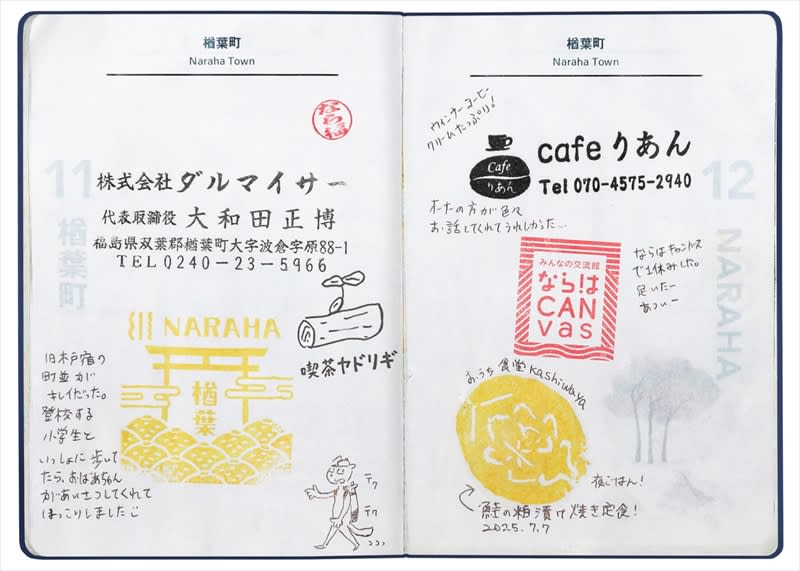 楢葉町
Naraha Town
なら福
11
楢葉町
株式会社 ダルマイサー
代表取締役 大和田正博
福島県双葉郡楢葉町大字波倉字原88-1
TEL0240-23-5966
喫茶ヤドリギ
NARAHA
楢葉
旧木戸宿の
町並が
キレイだった。
登校する
小学生と
いっしょに歩いて
たら、おばあちゃん
があいさつしてくれて
ほっこりしました
テク
テク
楢葉町
Naraha Town
12
NARAHA
ウインナーコーヒー
クリームたっぷり!
Cafe
りあん
cafe りあん
Tel 070-4575-2940
の方が色々
お話してくれてうれしかった…
みんなの交流館
ならは
CAN
vas
ならはキャンバス
で1休みした。
足いたー
あつぃー
おうち食堂 kashiwaya
夜ごはん!
鮭の粕漬け焼き定食!
2025.7.7